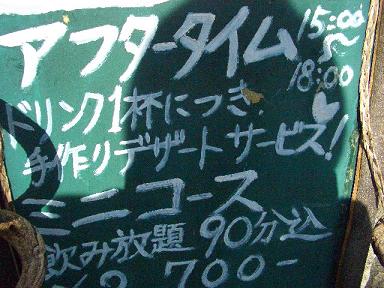 アフタータイム 15:00〜18:00
ドリンク1杯につき、
手作りデザートサービス!
ミニコース
飲み放題 90分込
700-